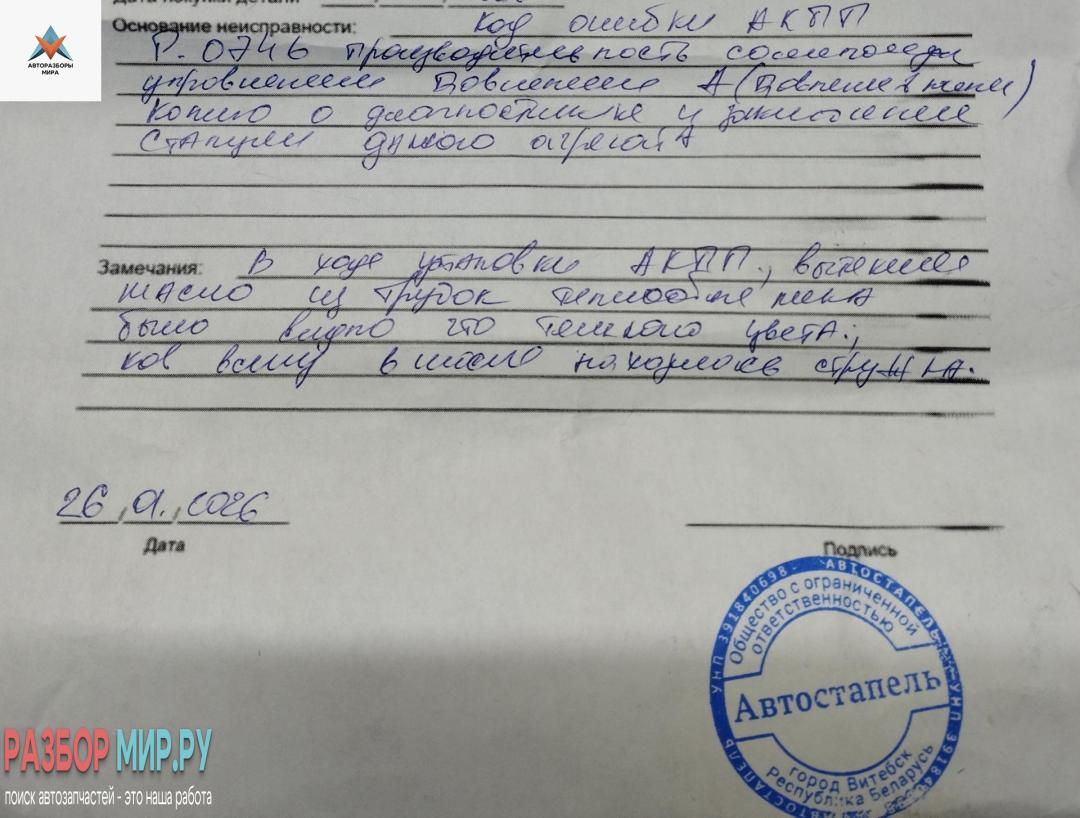 Дата покупки детали
АВТОРАЗБОРЫ
МИРА
Основание неисправности: Код ошибки АКПП
Р. 0746 производительность соленоеда
управлением Давлением А (Давление в
Копию о диагностике и заключении
Станции данного агрегата
Замечания: В ходе установки АКПП, вытекшее
масло из трубок теплообменника
было видно что темного цвета;
ков всему в масле находилась стружка.
26, 01., 2026
Дата
Подпись
УНП 391840698 АВТОСТАПЕЛЬ УНП
АВТОСТАПЕЛЬ
Общество с ограниченной
ответственностью
Автостапель
город Витебск
Республика Беларусь
РАЗБОР МИР.РУ
поиск автозапчастей - это наша работа